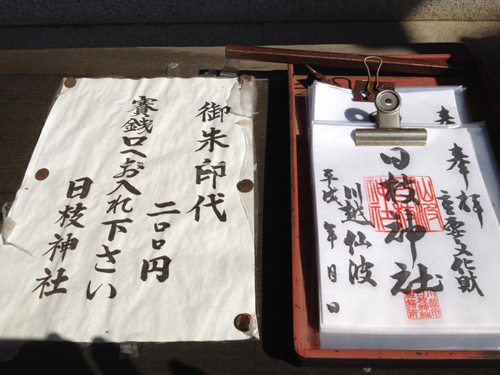 御朱印代
二〇〇円
賽銭口へお入れ下さい
日枝神社
奉拝
重要文化財
日枝神社
川越仙波
平成 年 月 日